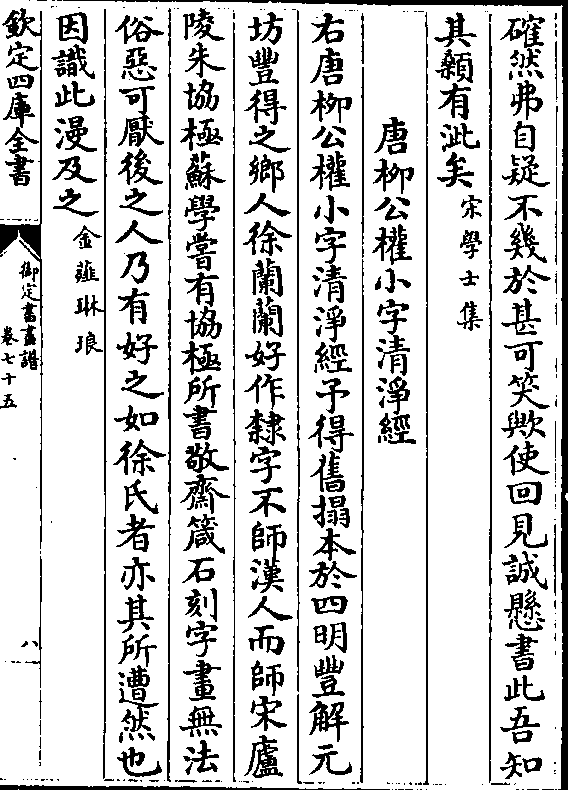 確然弗自疑不幾於甚可笑歟使回見誠懸書此吾知
其顙有泚矣宋學士集
唐柳公權小字清淨經
右唐柳公權小字清淨經予得舊搨本於四明豐解元
坊豐得之鄉人徐蘭蘭好作隸字不師漢人而師宋廬
陵朱協極蘇學嘗有協極所書敬齋箴石刻字畫無法
俗惡可厭後之人乃有好之如徐氏者亦其所遭然也
因識此漫及之金薤琳琅
欽定四庫全書
御定書畫譜
卷七十五
八